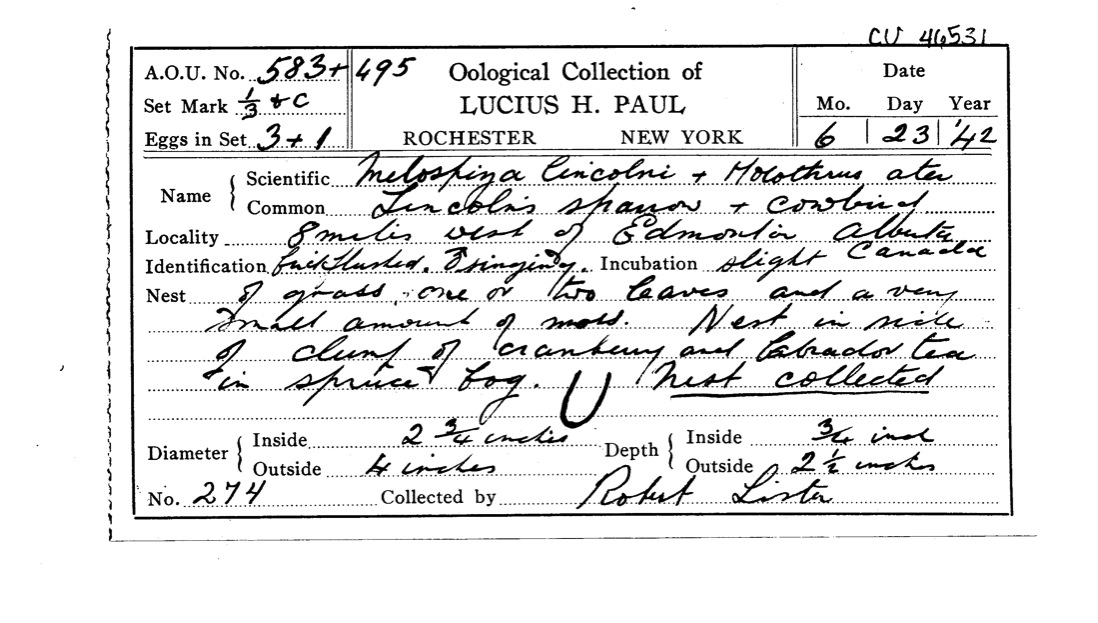 CU 46531
A.O.U. No. 583 + 495 Oological Collection of Date
Set Mark 1/3 + C LUCIUS H. PAUL Mo. Day Year
Eggs in Set 3 + 1 ROCHESTER NEW YORK 6 23 '42
Name Scientific Melospiza lincolni + Molothrus ater
Common Lincoln's sparrow + cowbird
Locality 8 miles west of Edmonton Alberta
Identification flushed. singing. Incubation slight Canada
Nest of grass, one or two leaves and a very
small amount of moss. Nest in side
of clump of cranberry and Labrador tea
in spruce bog. U Nest collected
Diameter Inside 2 3/4 inches Depth Inside 3/4 inch
Outside 4 inches Outside 2 1/2 inches
No. 274 Collected by Robert Lister